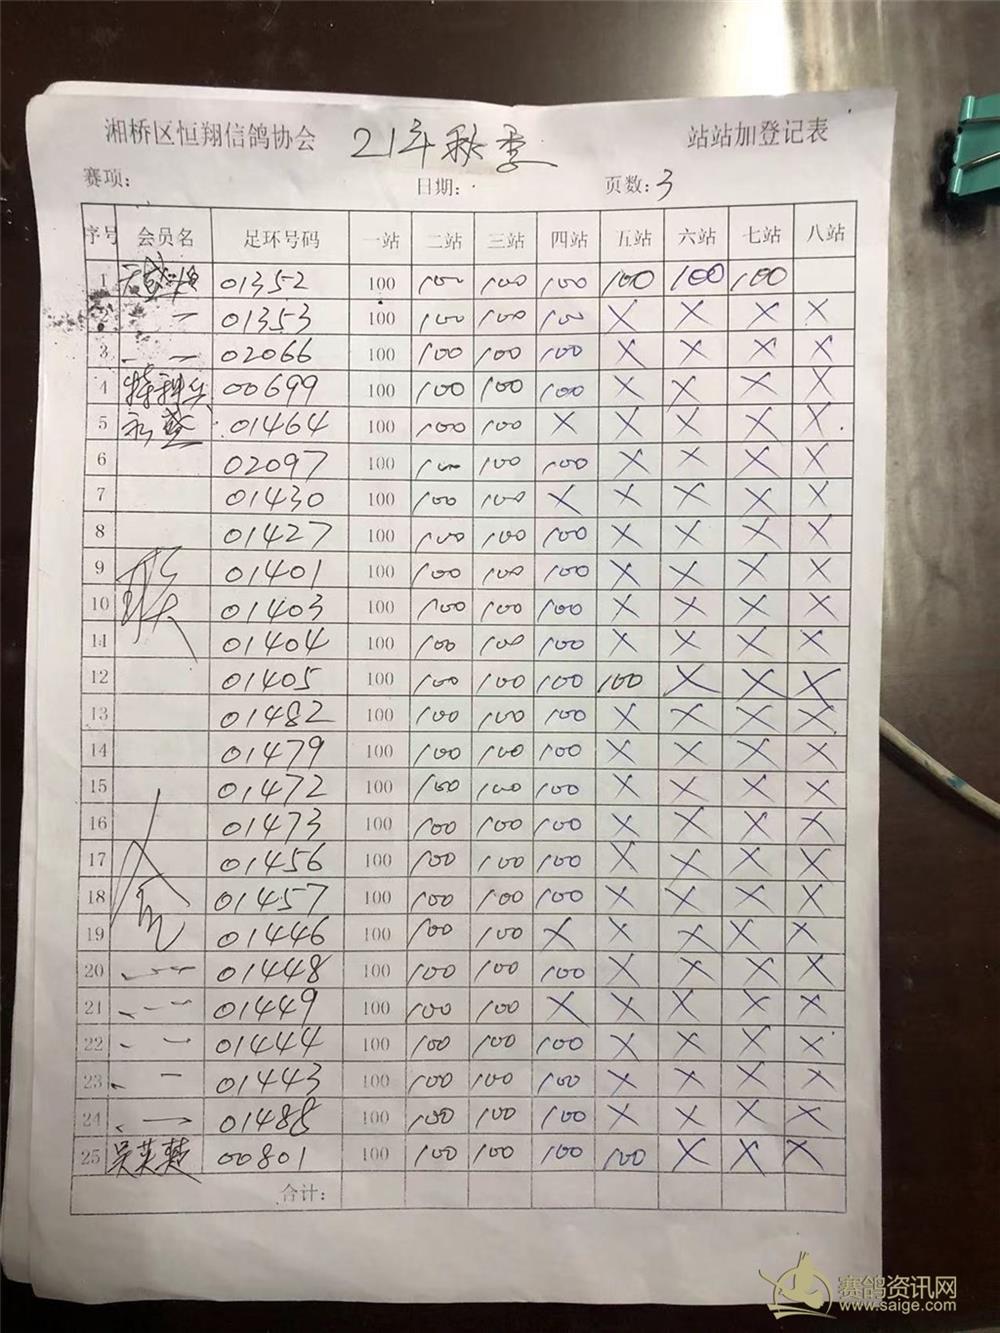 湘桥区恒翔信鸽协会 21年秋季 站站加登记表
赛项: 日期: 页数:3
序号 会员名 足环号码 一站 二站 三站 四站 五站 六站 七站 八站
1 01352 100 100 100 100 100 100 100
2 〃 01353 100 100 100 100 X X X X
3 〃 02066 100 100 100 100 X X X X
4 特种兵 00699 100 100 100 100 X X X X
5 永盛 01464 100 100 100 X X X X X
6 02097 100 100 100 100 X X X X
7 01430 100 100 100 X X X X X
8 01427 100 100 100 100 X X X X
9 联 01401 100 100 100 100 X X X X
10 01403 100 100 100 100 X X X X
11 01404 100 100 100 100 X X X X
12 01405 100 100 100 100 100 X X X
13 01482 100 100 100 100 X X X X
14 01479 100 100 100 100 X X X X
15 01472 100 100 100 100 X X X X
16 01473 100 100 100 100 X X X X
17 01456 100 100 100 100 X X X X
18 01457 100 100 100 100 X X X X
19 01446 100 100 100 X X X X X
20 〃 01448 100 100 100 100 X X X X
21 〃 01449 100 100 100 X X X X X
22 〃 01444 100 100 100 100 X X X X
23 〃 01443 100 100 100 100 X X X X
24 〃 01488 100 100 100 100 X X X X
25 吴英楚 00801 100 100 100 100 100 X X X
合计:
赛鸽资讯网
www.saige.com